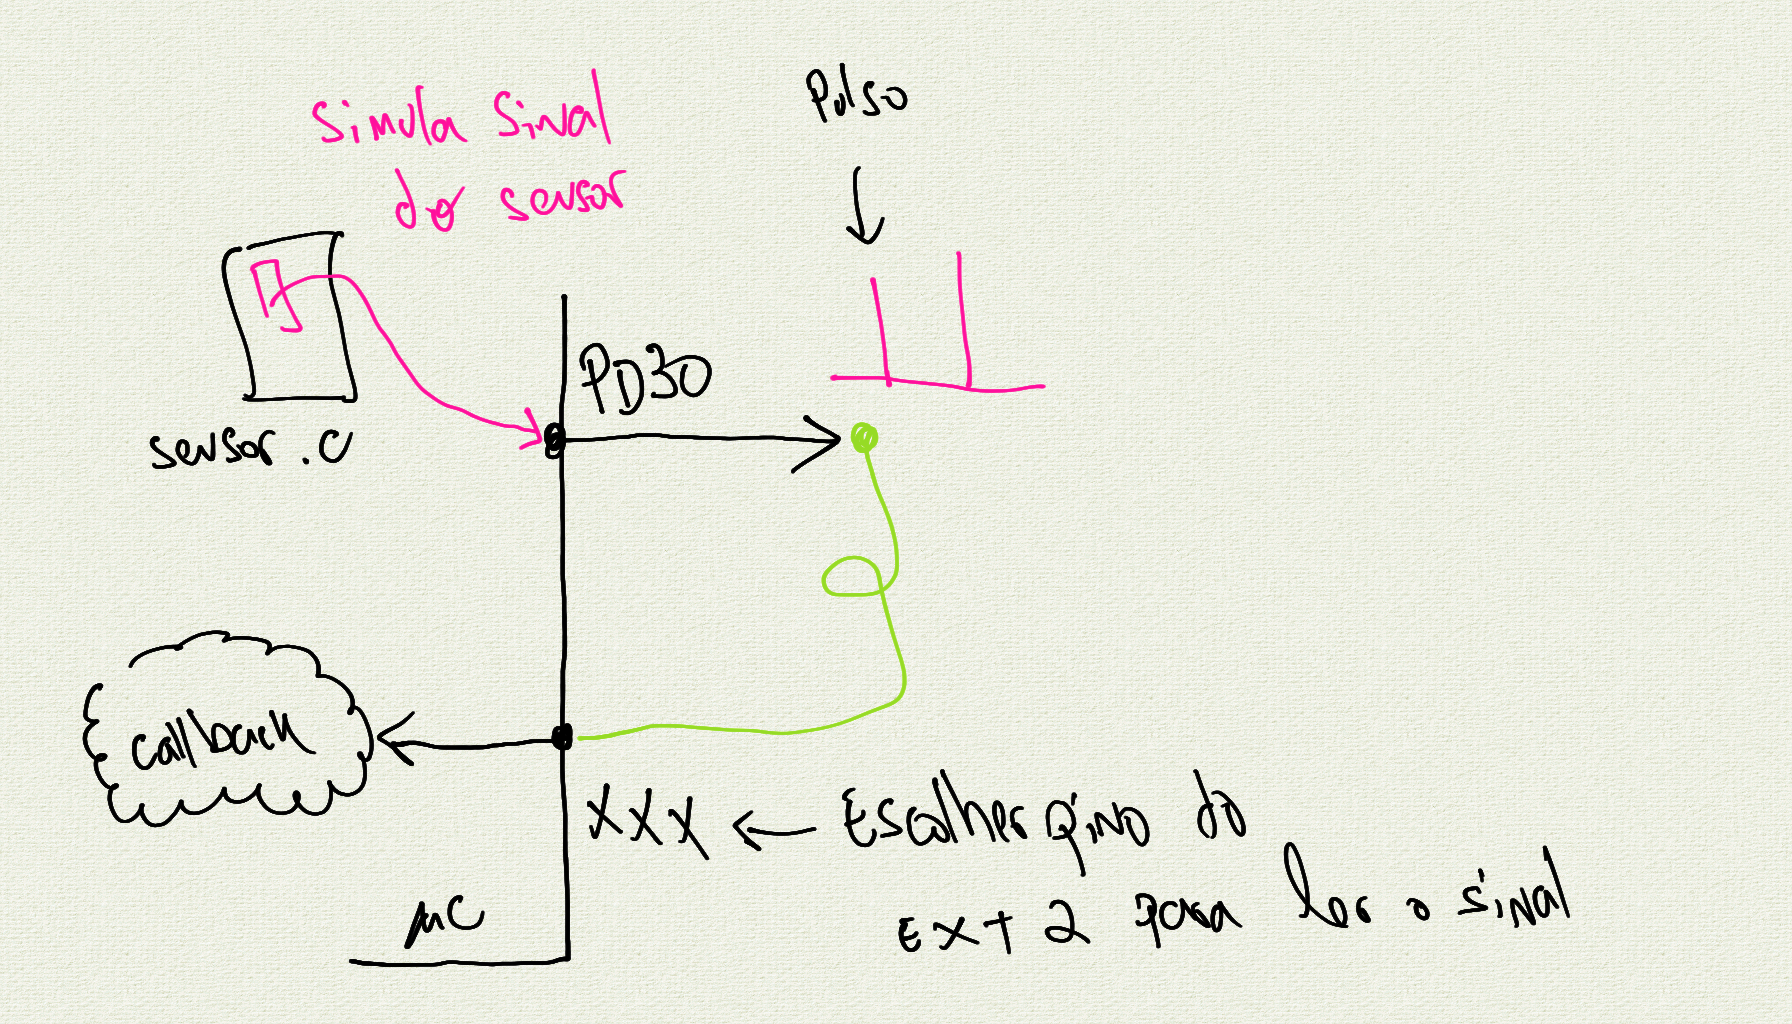 Simula Sinal
do sensor
Pulso
PD30
sensor.c
callback
XXX ← Escolher pino do
EXT 2 para ler o sinal
µC